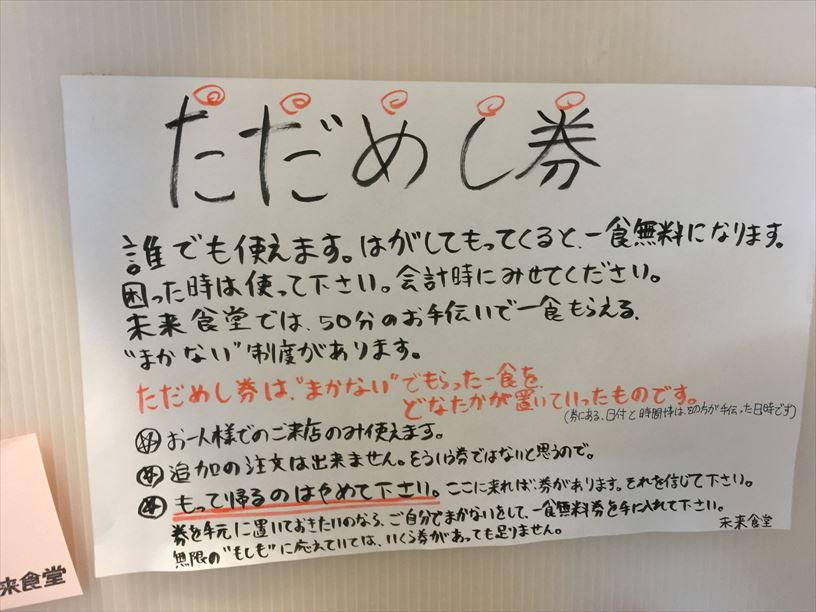 ただめし券
誰でも使えます。はがしてもってくると、一食無料になります。
困った時は使って下さい。会計時にみせてください。
未来食堂では、50分のお手伝いで一食もらえる、
"まかない"制度があります。
ただめし券は、"まかない"でもらった一食を、
どなたかが置いていったものです。
(券にある、日付と時間帯は、その方が手伝った日時です)
お一人様でのご来店のみ使えます。
追加の注文は出来ません。そういう券ではないと思うので。
もって帰るのはやめて下さい。ここに来れば券があります。それを信じて下さい。
券を手元に置いておきたいのなら、ご自分でまかないをして、一食無料券を手に入れて下さい。
無限の"もしも"に応えていては、いくら券があっても足りません。
未来食堂
来食堂